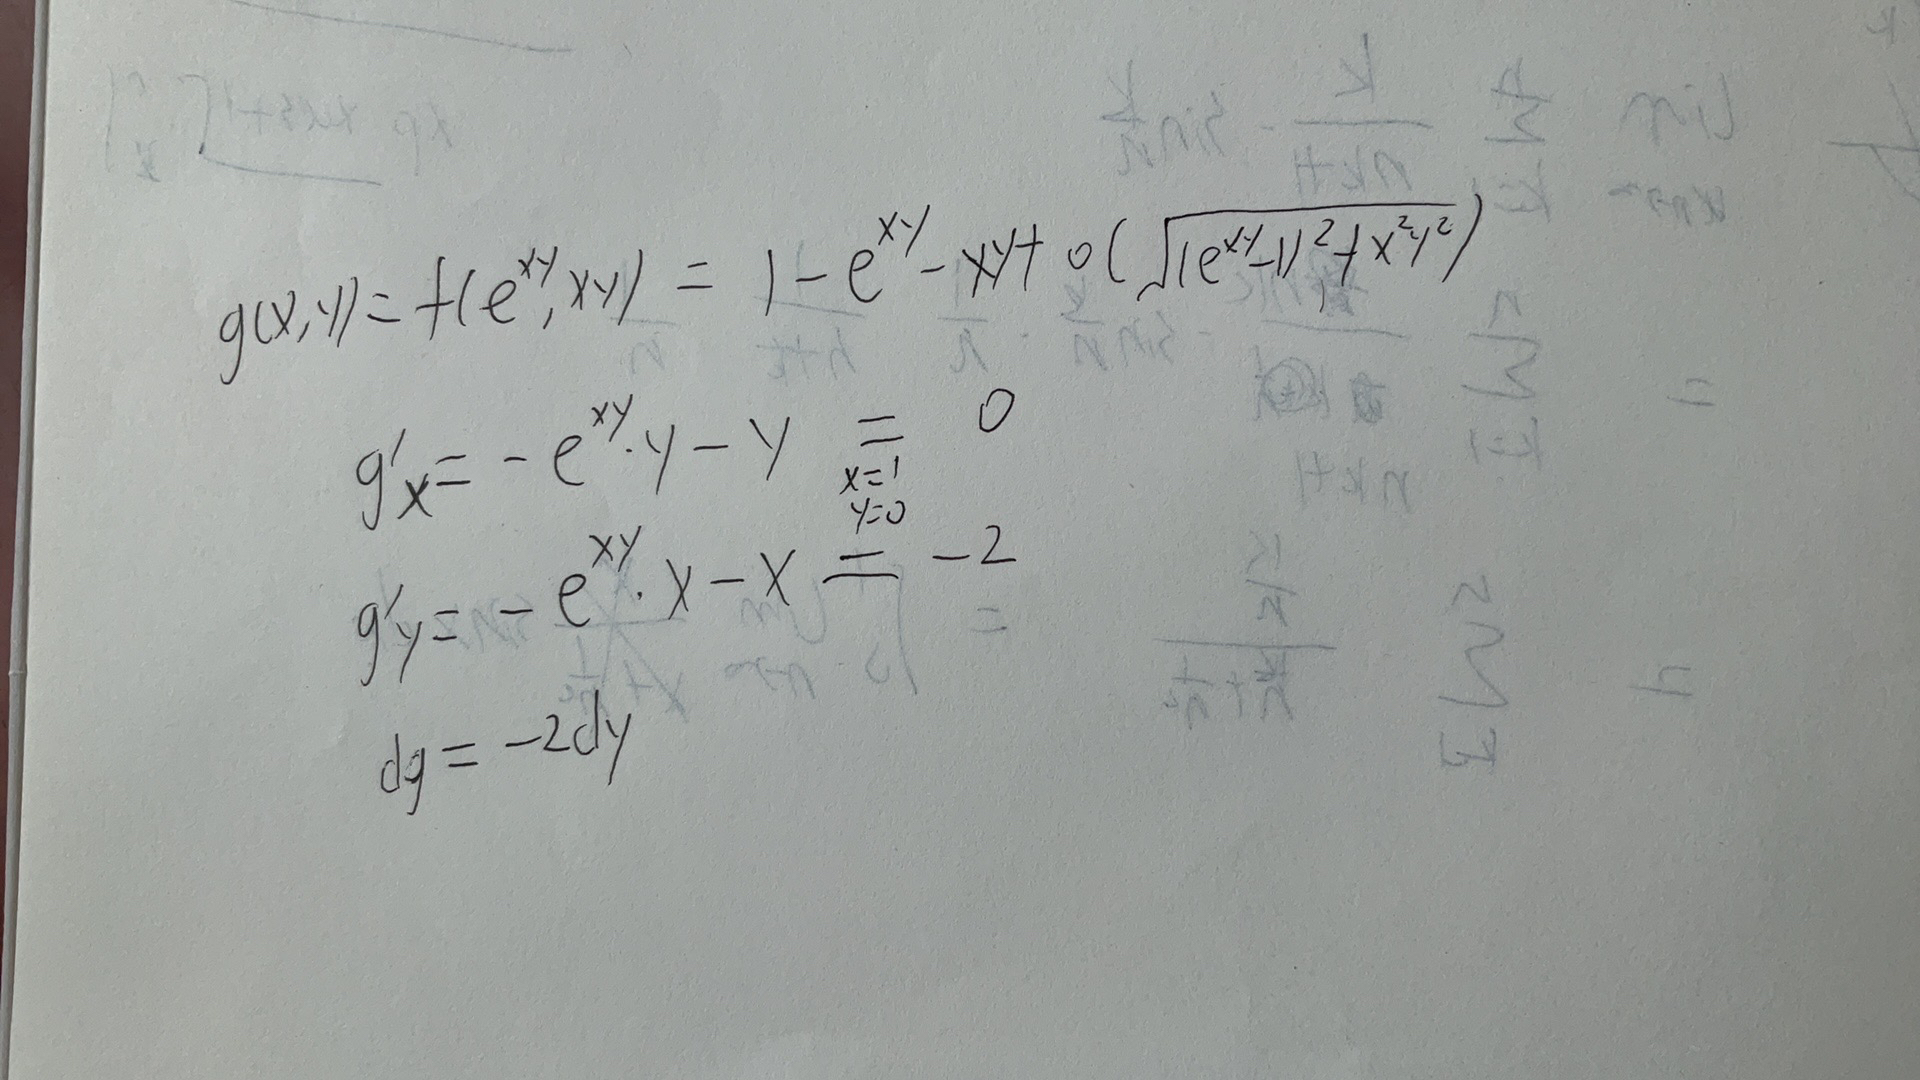 g(x,y) = f(e^{xy}, xy) = 1 - e^{xy} - xy + o(√((e^{xy}-1)^2 + x^2y^2))
g'x = - e^{xy} · y - y = 0
x=1
y=0
g'y = - e^{xy} · x - x = -2
dg = -2dy